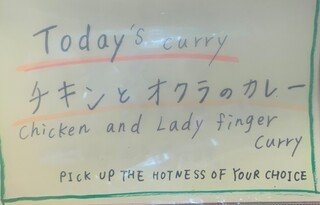 Today's curry
チキンとオクラのカレー
Chicken and Lady finger
curry
PICK UP THE HOTNESS OF YOUR CHOICE